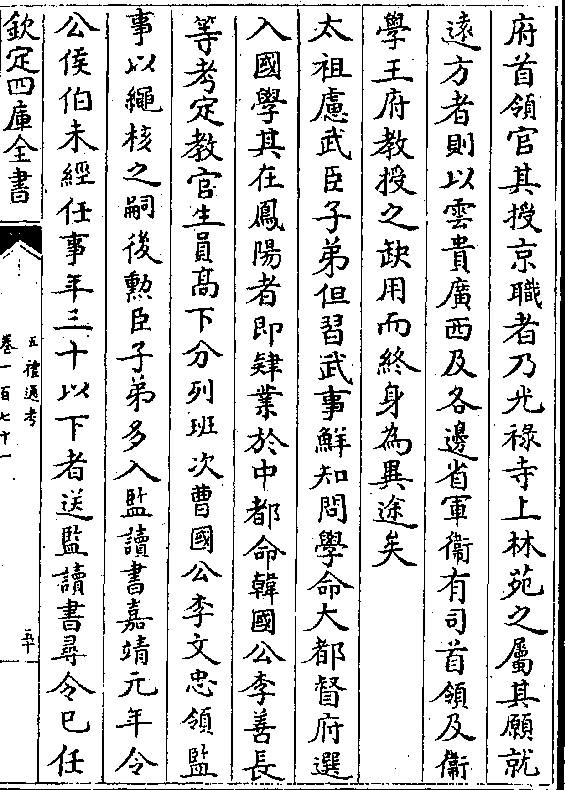 府首領官其授京職者乃光祿寺上林苑之屬其願就
遠方者則以雲貴廣西及各邊省軍衞有司首領及衞
學王府教授之缺用而終身為異途矣
太祖慮武臣子弟但習武事鮮知問學命大都督府選
入國學其在鳳陽者即肄業於中都命韓國公李善長
等考定教官生員高下分列班次曹國公李文忠領監
事以繩核之嗣後勲臣子弟多入監讀書嘉靖元年令
公侯伯未經任事年三十以下者送監讀書尋令已任
欽定四庫全書
五禮通考
卷一百七十一
五十